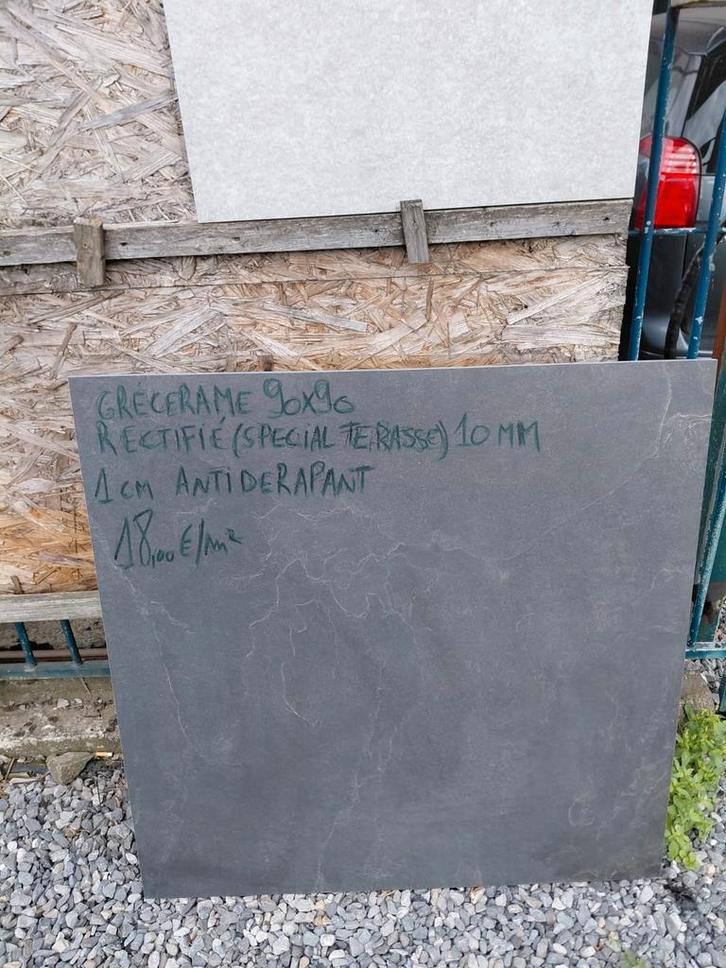 GRÉCERAME 90X90
RECTIFIÉ (SPECIAL TERASSE) 10 MM
1 CM ANTIDERAPANT
18,00 €/m²